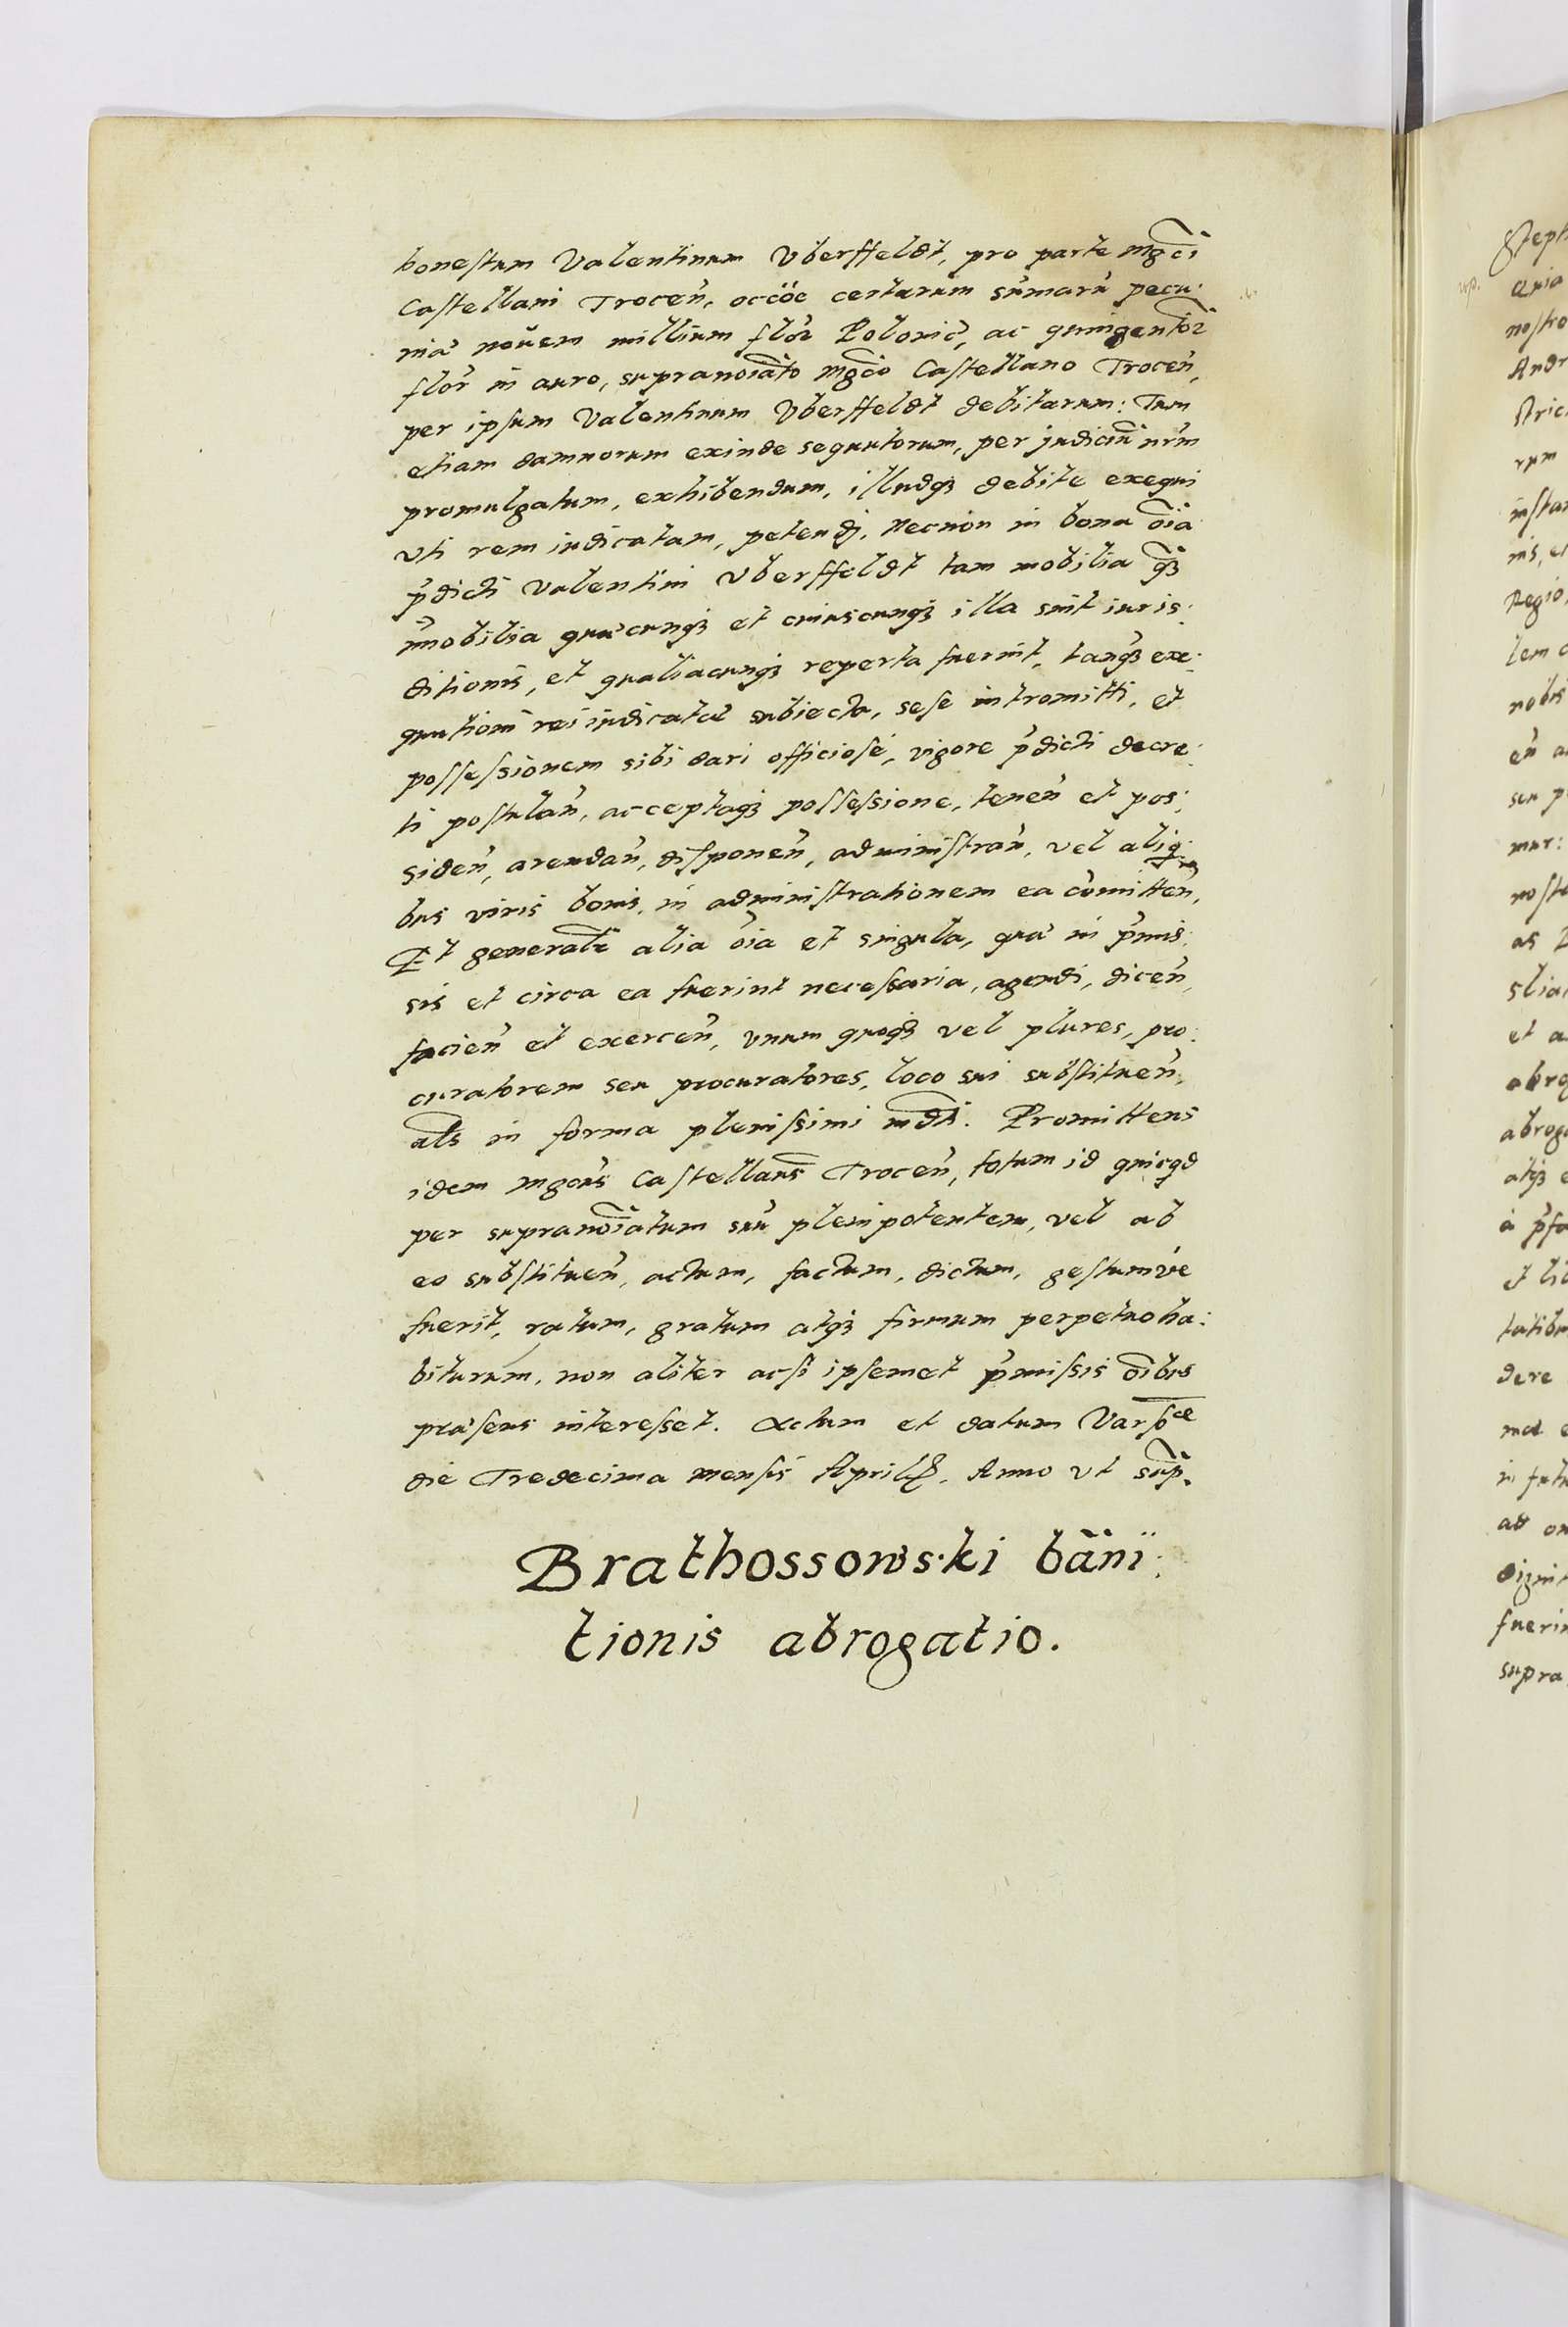 honestum Valentinum Vberffeldt, pro parte Mgci
Castellani Trocen̄, occōe certarum sum̄arū pecu:
niæ novem millium flor̄ Polonic̄, ac quingentor̄
flor̄ in auro, supranoiāto Mgcō Castellano Trocen̄,
per ipsum Valentinum Vberffeldt debitarum: Tum
etiam damnorum exinde sequutorum, per judiciū nr̄m
promulgatum, exhibendum, illudqȝ debite exequi
vti rem iudicatam, petendj. Necnon in bona oīa
p̄dicti Valentini Vberffeldt tam mobilia qȝ
im̄obilia quæcunqȝ et cuiuscunqȝ illa sint iuris:
ditionis, et qualiacunqȝ reperta fuerint, tanqȝ exe:
qutioni rei iudicatæ subiecta, sese intromitti, et
possessionem sibi dari officiosè, vigore p̄dicti decre:
ti postulan̄, acceptaqȝ possessione, tenen̄ et pos:
siden̄, arendan̄, disponen̄, administran̄, vel aliq:
bus viris bonis, in administrationem ea com̄itten̄,
Et generalr̄ alia oīa et singula, quæ in p̄mis:
sis et circa ea fuerint necessaria, agendi, dicen̄,
facien̄ et exercen̄, vnum quoqȝ vel plures, pro:
curatorem seu procuratores, loco sui substituen̄,
als in forma plenissimi mdti. Promittens
idem Mgcus Castellanus Trocen̄, totum id quicqd
per supranoiātum suū plenipotentem, vel ab
eo substituen̄, actum, factum, dictum, gestumvè
fuerit, ratum, gratum atqȝ firmum perpetuo ha:
biturum, non aliter acsi ipsemet p̄missis oībus
præsens interesset. Actum et datum Varsce
die Tredecima mensis Aprilꝭ. Anno vt sup̄.
Brathossowski bān̄i:
tionis abrogatio.
Steph
Quia
nostro
Andr
stric
rum
instan
nis, et
Regio
lem c
nobis
en̄ a
seu p
mur:
noste
as
slia
et a
abrog
abroga
atqȝ e
à p̄fa
et li
tatibu
dere
in futu
ad on
digni
fuerin
supra